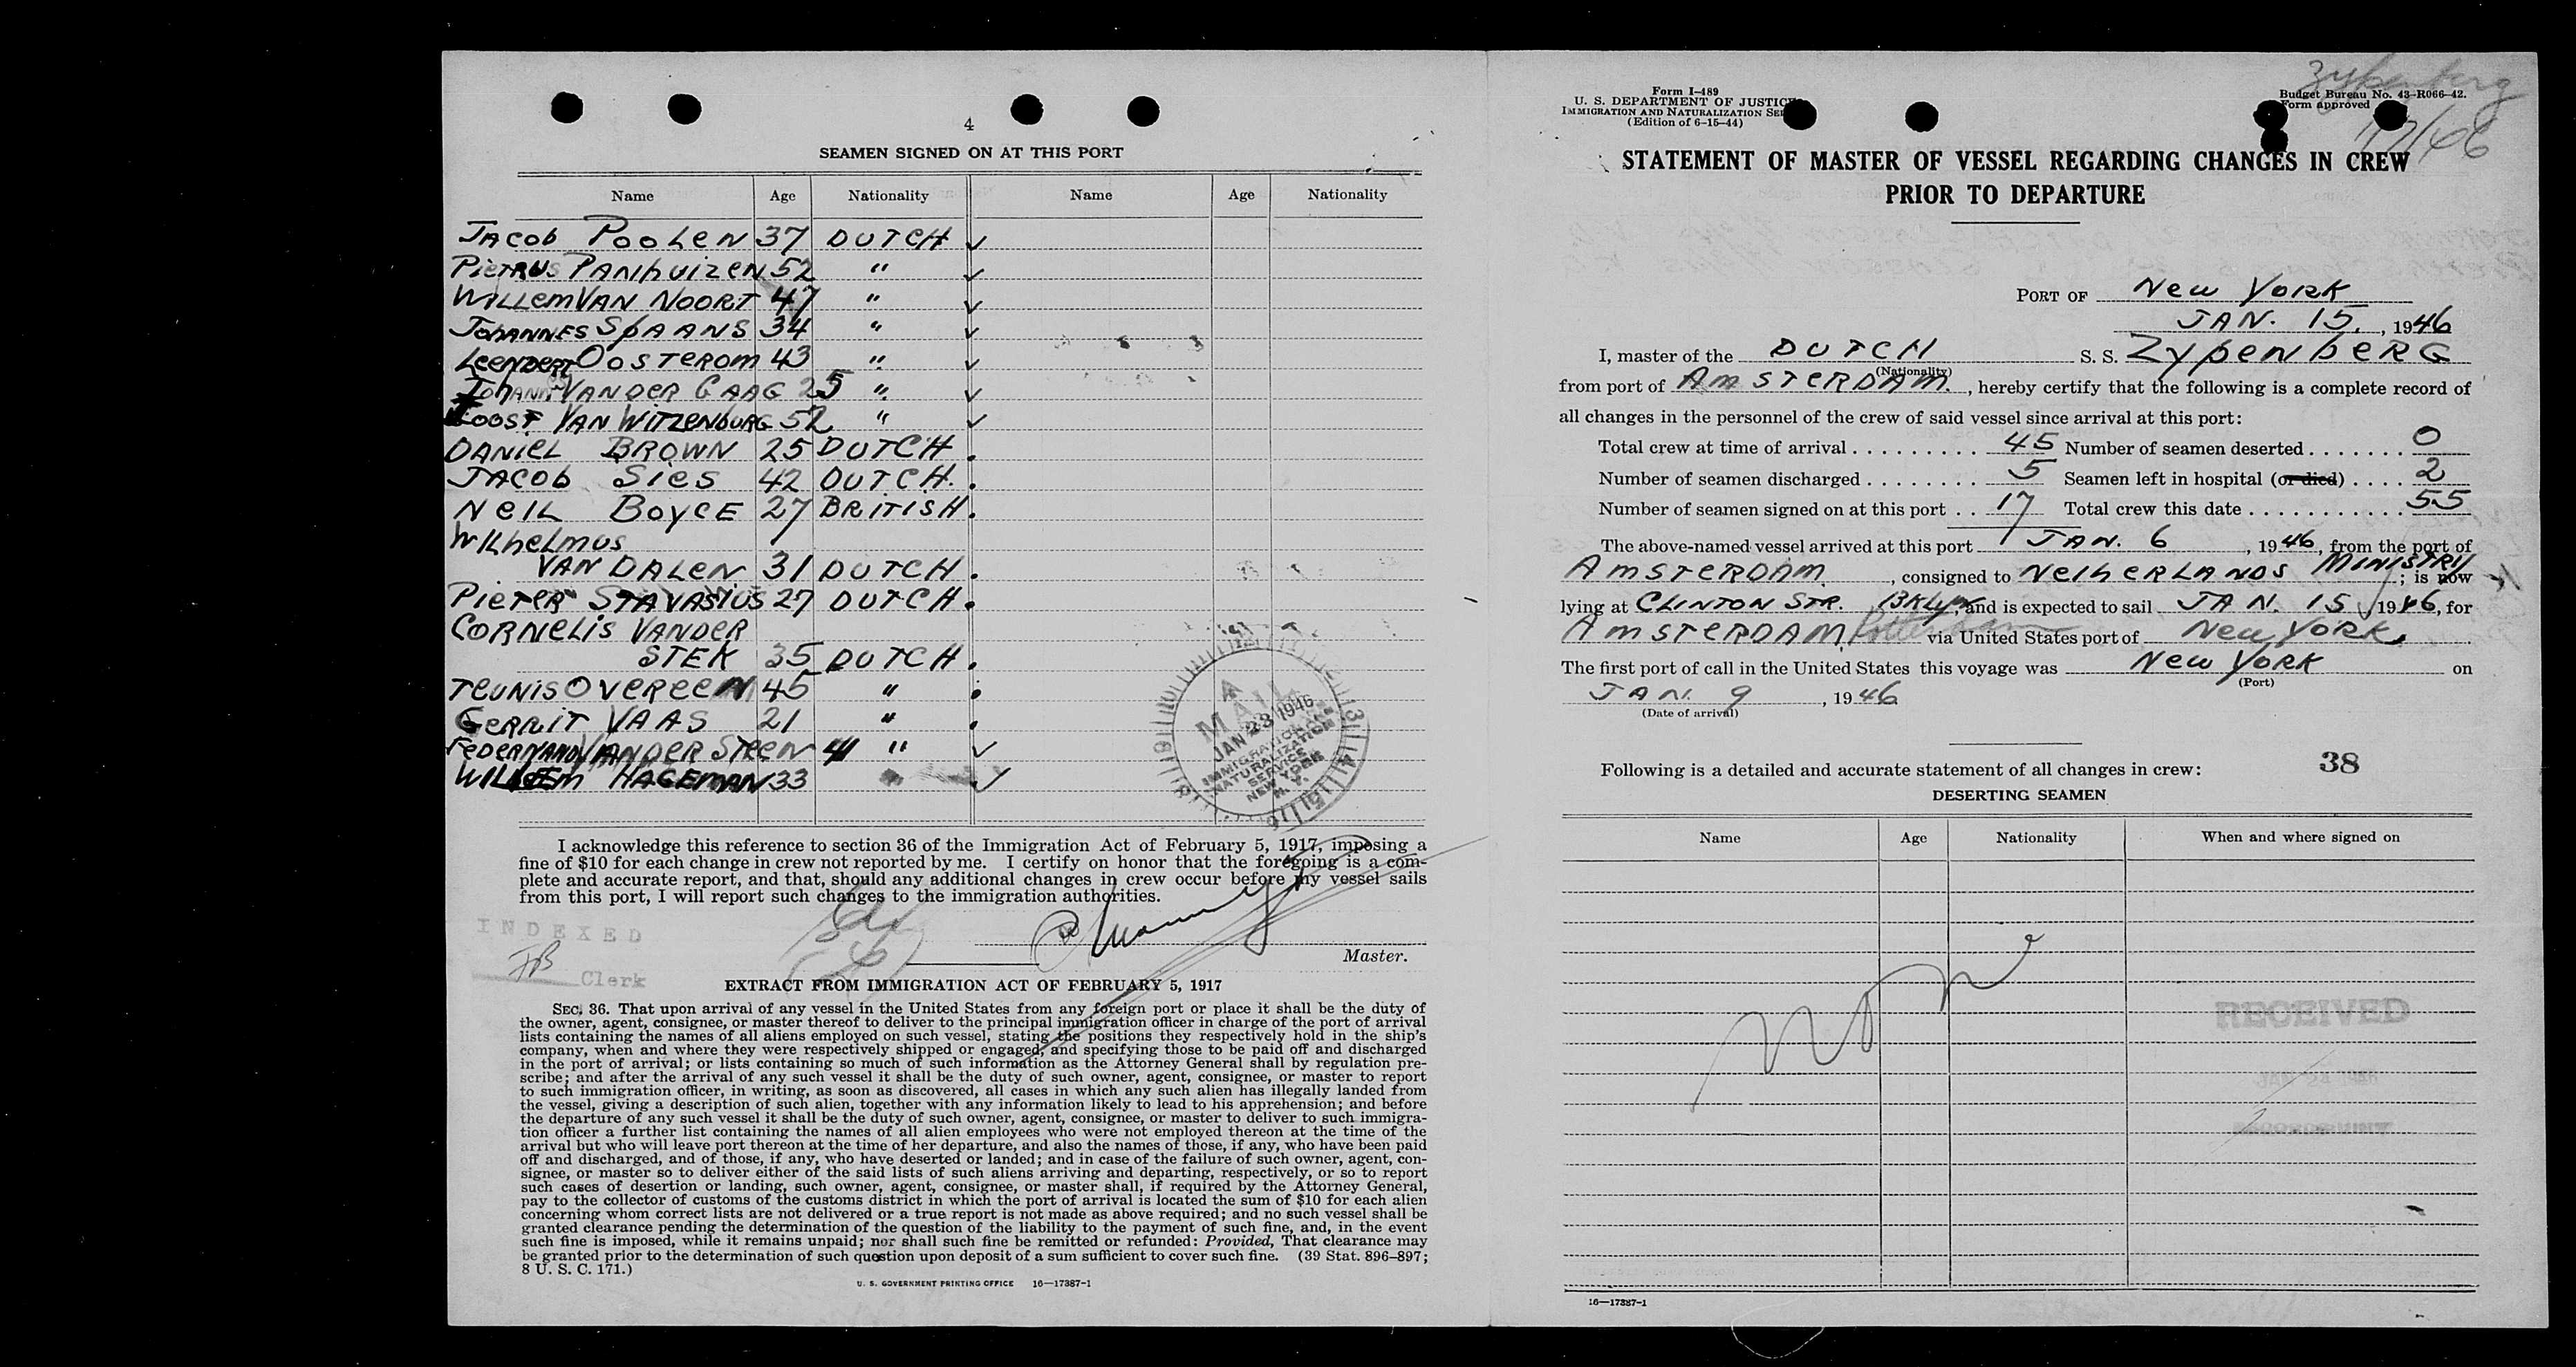 4
SEAMEN SIGNED ON AT THIS PORT
Name Age Nationality Name Age Nationality
JACOB POOLEN 37 DUTCH ✓
PIETRUS PANHUIZEN 52 " ✓
WILLEM VAN NOORT 47 " ✓
JOHANNES SPAANS 34 " ✓
LEENDERT OOSTEROM 43 " ✓
VAN DER GAAG 25 " ✓
JOOST VAN WITZENBURG 52 " ✓
DANIEL BROWN 25 DUTCH.
JACOB SIES 42 DUTCH.
NEIL BOYCE 27 BRITISH.
WILHELMUS
VAN DALEN 31 DUTCH.
PIETER STAVASIUS 27 DUTCH.
CORNELIS VANDER
STEK 35 DUTCH.
TEUNIS OVEREEM 45 "
GERRIT VAAS 21 "
FEDERNAND VANDER STEEN 41 " ✓
WILLEM HAGEMAN 33 ✓
A
MAIL
JAN 23 1946
IMMIGRATION AND
NATURALIZATION
SERVICE
NEW YORK
N. Y.
I acknowledge this reference to section 36 of the Immigration Act of February 5, 1917, imposing a
fine of $10 for each change in crew not reported by me. I certify on honor that the foregoing is a com-
plete and accurate report, and that, should any additional changes in crew occur before my vessel sails
from this port, I will report such changes to the immigration authorities.
INDEXED
JB Clerk
Master.
EXTRACT FROM IMMIGRATION ACT OF FEBRUARY 5, 1917
SEC. 36. That upon arrival of any vessel in the United States from any foreign port or place it shall be the duty of
the owner, agent, consignee, or master thereof to deliver to the principal immigration officer in charge of the port of arrival
lists containing the names of all aliens employed on such vessel, stating the positions they respectively hold in the ship's
company, when and where they were respectively shipped or engaged, and specifying those to be paid off and discharged
in the port of arrival; or lists containing so much of such information as the Attorney General shall by regulation pre-
scribe; and after the arrival of any such vessel it shall be the duty of such owner, agent, consignee, or master to report
to such immigration officer, in writing, as soon as discovered, all cases in which any such alien has illegally landed from
the vessel, giving a description of such alien, together with any information likely to lead to his apprehension; and before
the departure of any such vessel it shall be the duty of such owner, agent, consignee, or master to deliver to such immigra-
tion officer a further list containing the names of all alien employees who were not employed thereon at the time of the
arrival but who will leave port thereon at the time of her departure, and also the names of those, if any, who have been paid
off and discharged, and of those, if any, who have deserted or landed; and in case of the failure of such owner, agent, con-
signee, or master so to deliver either of the said lists of such aliens arriving and departing, respectively, or so to report
such cases of desertion or landing, such owner, agent, consignee, or master shall, if required by the Attorney General,
pay to the collector of customs of the customs district in which the port of arrival is located the sum of $10 for each alien
concerning whom correct lists are not delivered or a true report is not made as above required; and no such vessel shall be
granted clearance pending the determination of the question of the liability to the payment of such fine, and, in the event
such fine is imposed, while it remains unpaid; nor shall such fine be remitted or refunded: Provided, That clearance may
be granted prior to the determination of such question upon deposit of a sum sufficient to cover such fine. (39 Stat. 896–897;
8 U. S. C. 171.)
U. S. GOVERNMENT PRINTING OFFICE 16—17387-1
Zypenberg
Form I-489
U. S. DEPARTMENT OF JUSTICE
IMMIGRATION AND NATURALIZATION
(Edition of 6-15-44)
Budget Bureau No. 43-R066-42.
Form approved
STATEMENT OF MASTER OF VESSEL REGARDING CHANGES IN CREW
PRIOR TO DEPARTURE
PORT OF New York
JAN. 15, 1946
I, master of the DUTCH S. S. ZypenberG
(Nationality)
from port of AMSTERDAM, hereby certify that the following is a complete record of
all changes in the personnel of the crew of said vessel since arrival at this port:
Total crew at time of arrival 45 Number of seamen deserted 0
Number of seamen discharged 5 Seamen left in hospital (or died) 2
Number of seamen signed on at this port 17 Total crew this date 55
The above-named vessel arrived at this port JAN. 6, 1946, from the port of
AMSTERDAM, consigned to NETHERLANDS MINISTRY; is now
lying at CLINTON STR. BKLYN, and is expected to sail JAN. 15, 1946, for
AMSTERDAM Rotterdam via United States port of New York
The first port of call in the United States this voyage was New York on
(Port)
JAN. 9, 1946
(Date of arrival)
Following is a detailed and accurate statement of all changes in crew: 38
DESERTING SEAMEN
Name Age Nationality When and where signed on
none
RECEIVED
JAN 24 1946
16—17387-1